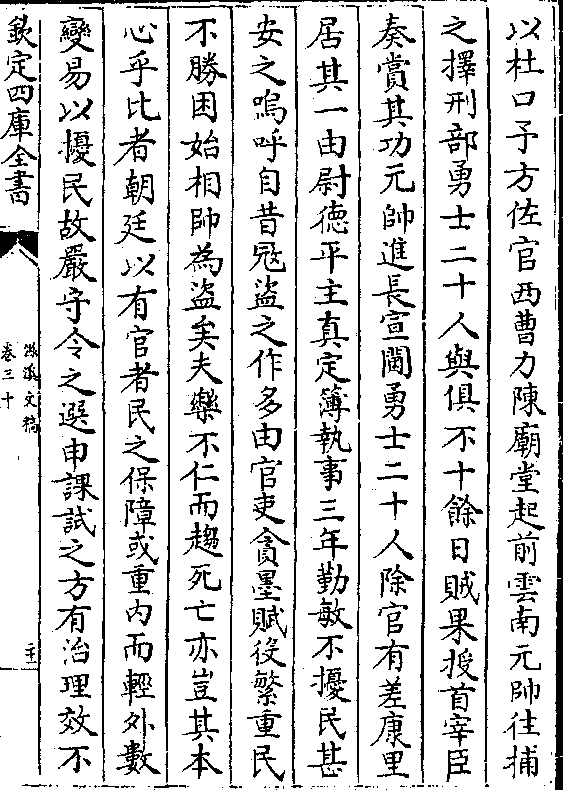 以杜口予方佐官西曹力陳廟堂起前雲南元帥往捕
之擇刑部勇士二十人與俱不十餘日賊果授首宰臣
奏賞其功元帥進長宣閫勇士二十人除官有差康里
居其一由尉德平主真定簿執事三年勤敏不擾民甚
安之嗚呼自昔寇盜之作多由官吏貪墨賦役繁重民
不勝困始相帥為盜矣夫樂不仁而趨死亡亦豈其本
心乎比者朝廷以有官者民之保障或重内而輕外數
變易以擾民故嚴守令之選申課試之方有治理效不
欽定四庫全書
滋溪文稿
卷三十